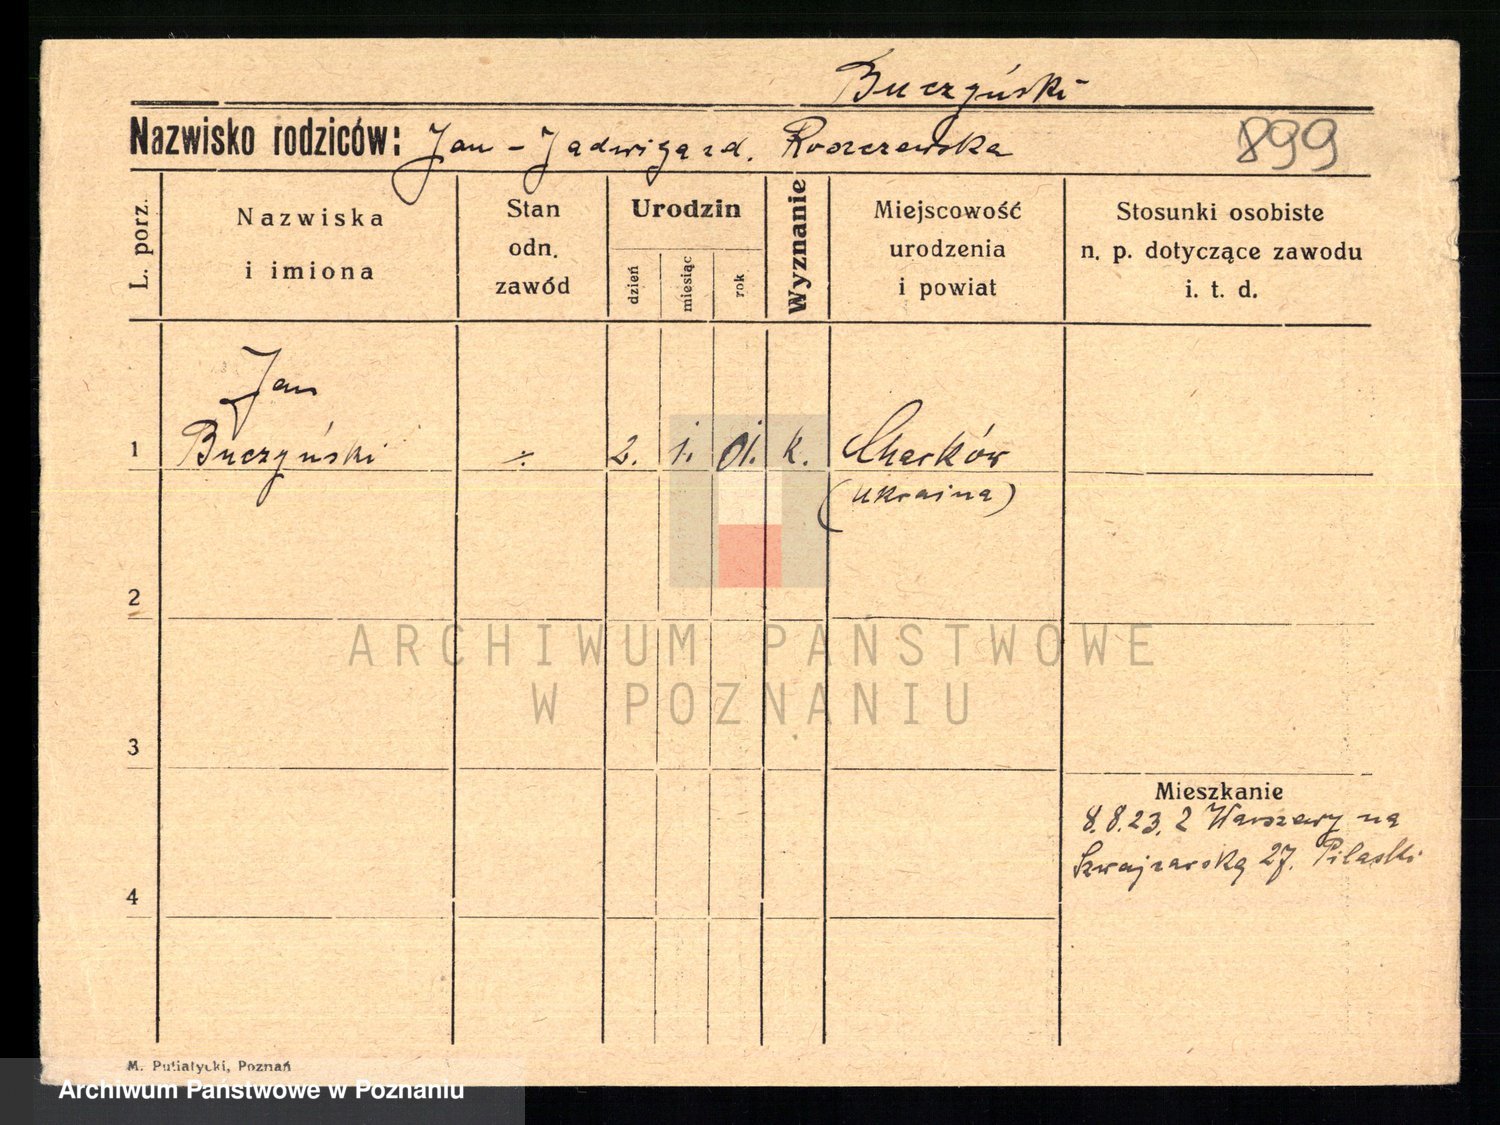 Buczyński
Nazwisko rodziców: Jan - Jadwiga zd. Roszczewska
899
L. porz.
Nazwiska
i imiona
Stan
odn.
zawód
Urodzin
dzień
miesiąc
rok
Wyznanie
Miejscowość
urodzenia
i powiat
Stosunki osobiste
n. p. dotyczące zawodu
i. t. d.
Jan
1 Buczyński ÷ 2. 1. 01. k. Charków
(Ukraina)
2
ARCHIWUM PAŃSTWOWE
W POZNANIU
3
Mieszkanie
8.8.23. z Warszawy na
Szwajcarską 27. Pilaski
4
M. Putiatycki, Poznań
Archiwum Państwowe w Poznaniu